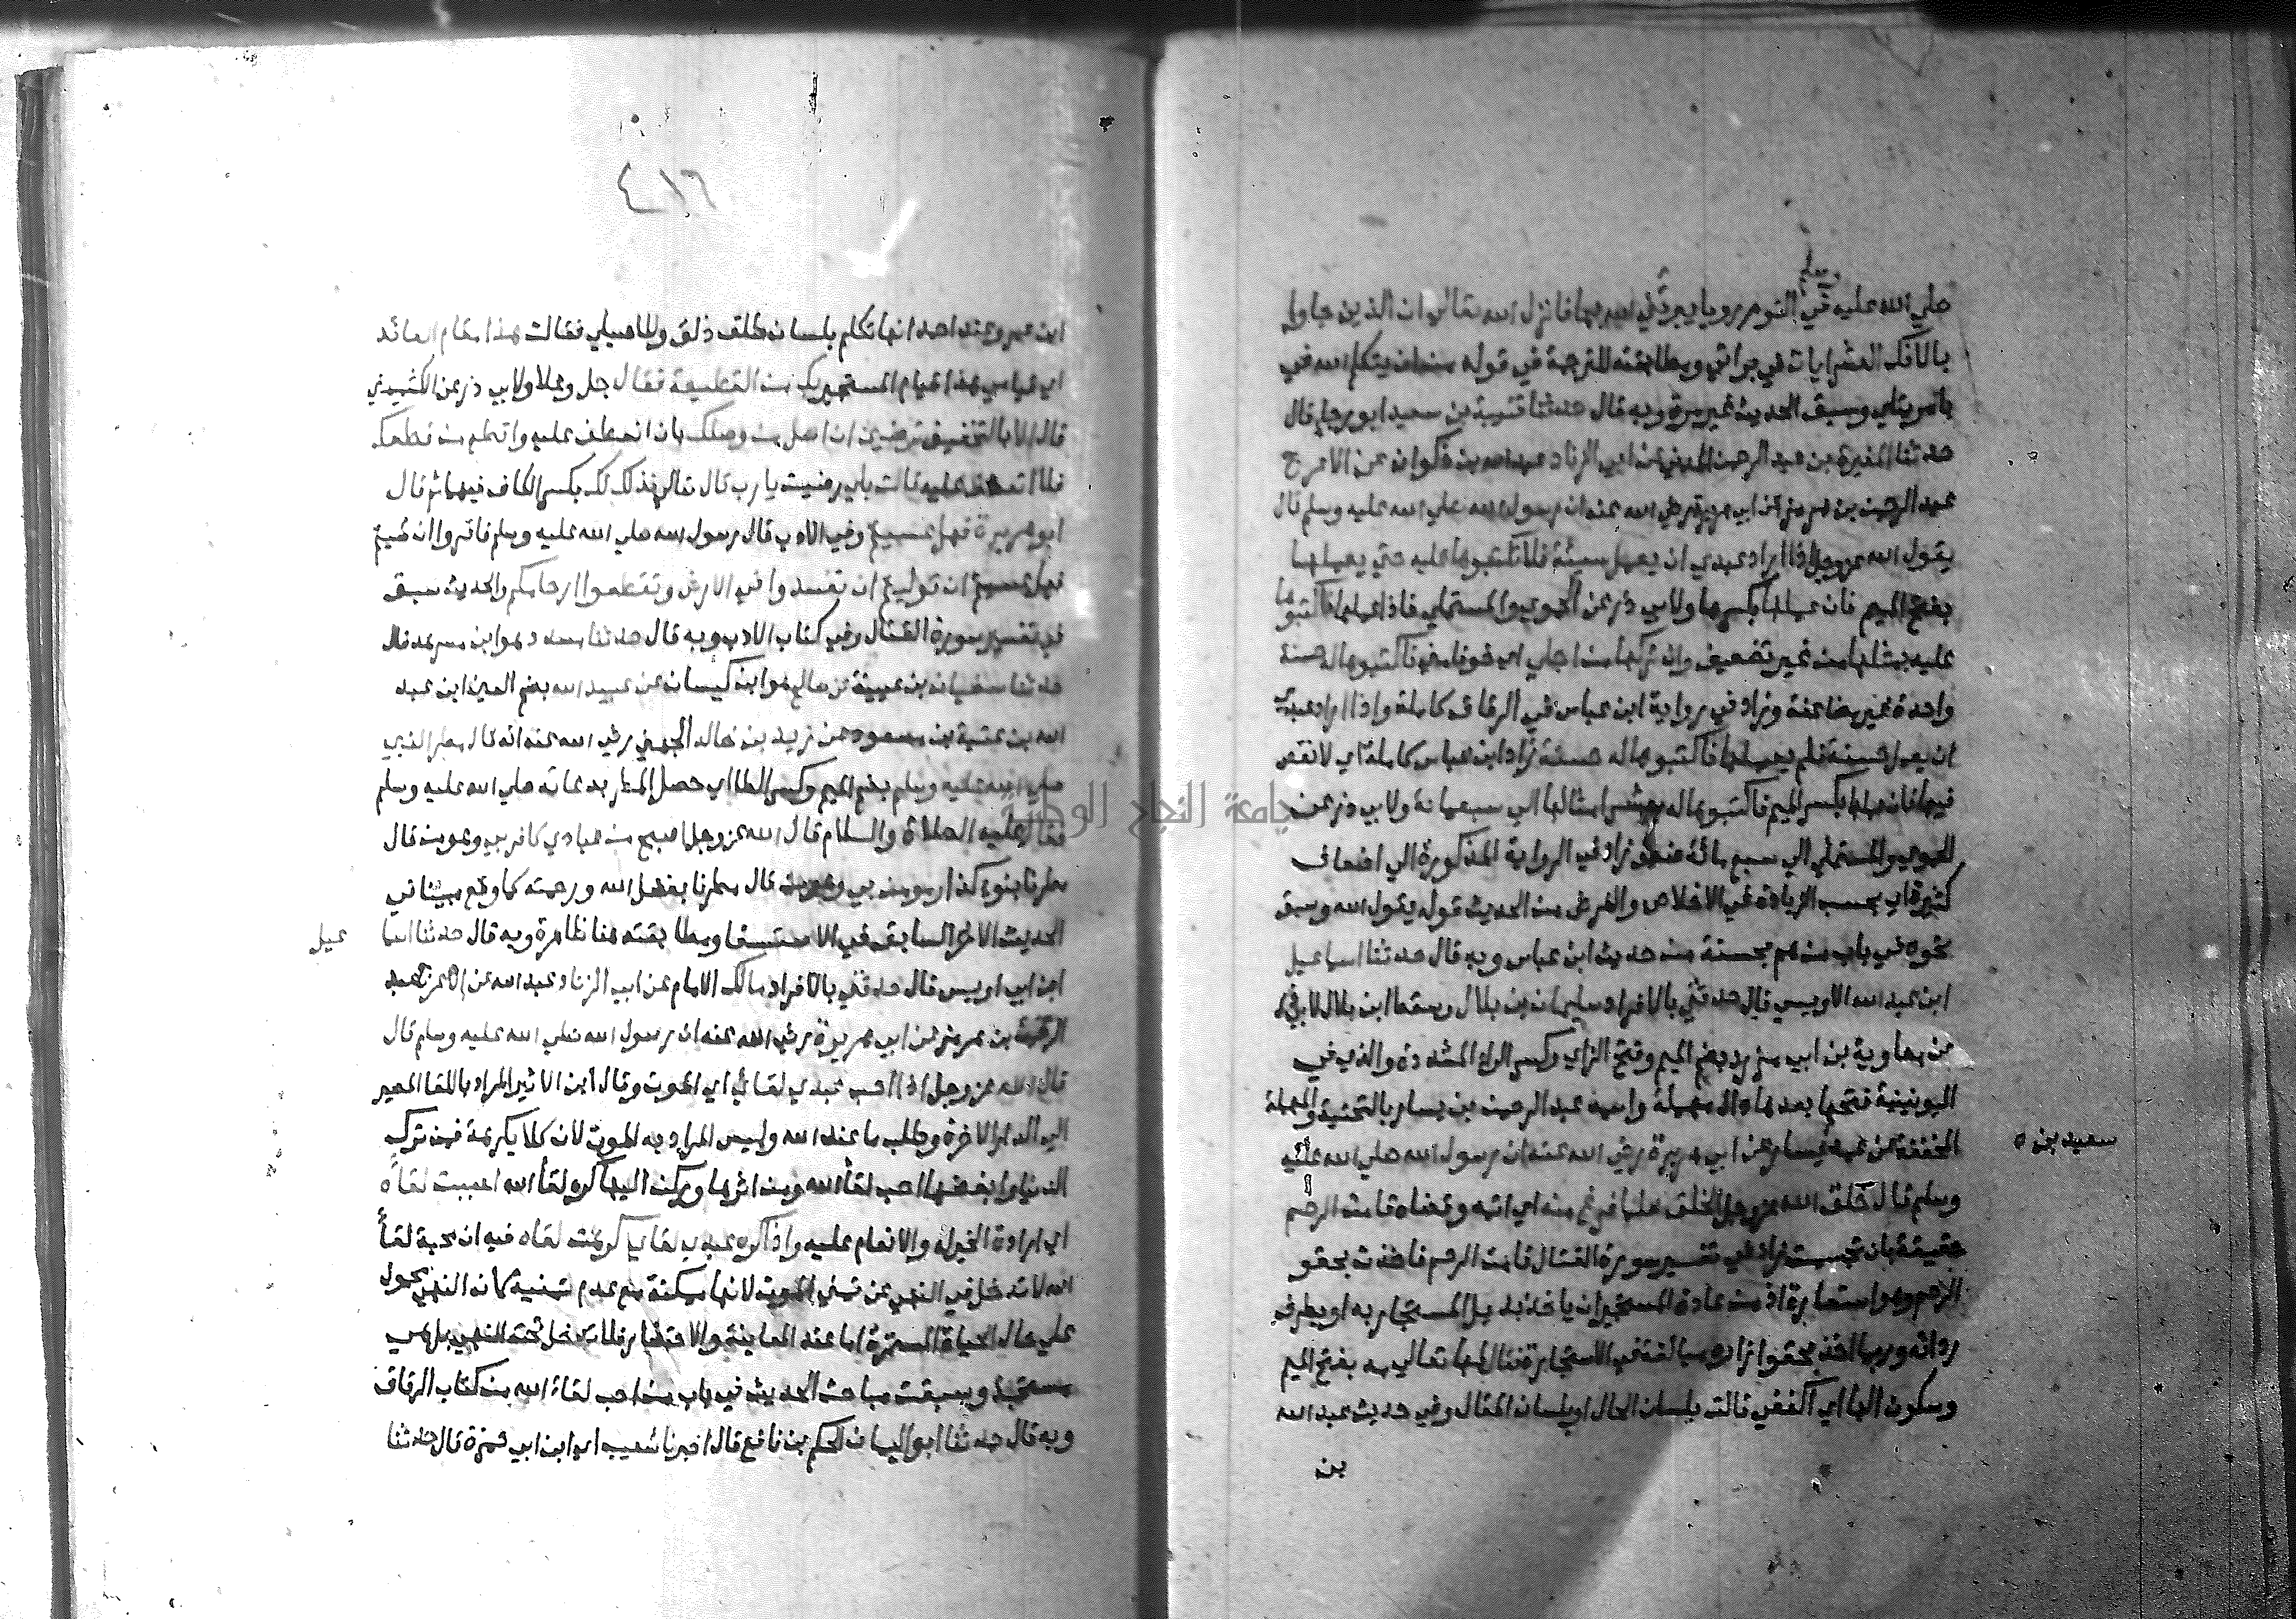 وسلم
صلي الله عليه في النوم رويا يبرئني الله بها فانزل الله تعالي ان الذين جاوا
بالافك العشر ايات في براتي ومطابقته للترجمة في قوله من ان يتكلم الله في
بامر يتلي وسبق الحديث غير مرة وبه قال حدثنا قتيبة بن سعيد ابو رجا قال
حدثنا المغيرة بن عبد الرحمن المدني عن ابي الزناد عبد الله بن ذكوان عن الاعرج
عبد الرحمن بن هرمز عن ابي هريرة رضي الله عنه ان رسول الله صلي الله عليه وسلم قال
يقول الله عز وجل اذا اراد عبدي ان يعمل سيئة فلا تكتبوها عليه حتي يعملها
بفتح الميم فان عملها بكسرها ولابي ذر عن الحموي والمستملي فاذا عملها فاكتبوها
عليه بمثلها من غير تضعيف وان تركها من اجلي اي خوفا مني فاكتبوها له حسنة
واحدة غير مضاعفة وزاد في رواية ابن عباس في الرقاق كاملة واذا اراد عبدي
ان يعمل حسنة فلم يعملها فاكتبوها له حسنة زاد ابن عباس كاملة اي لا نقص
فيها فان عملها بكسر الميم فاكتبوها له بعشر امثالها الي سبعمائة ولابي ذر عن
الحموي والمستملي الي سبع مائة ضعف زاد في الرواية المذكورة الي اضعاف
كثيرة اي بحسب الزيادة في الاخلاص والغرض من الحديث قوله يقول الله وسبق
نحوه في باب من هم بحسنة من حديث ابن عباس وبه قال حدثنا اسماعيل
ابن عبد الله الاويسي قال حدثني بالافراد سليمان بن بلال وسقط ابن بلال لابي ذر
عن معاوية بن ابي مزرد بضم الميم وفتح الزاي وكسر الراء المشددة والذي في
اليونينية فتحها بعدها دال مهملة واسمه عبد الرحمن بن يسار بالتحتية والمهملة
المخففة عن عمه يسار عن ابي هريرة رضي الله عنه ان رسول الله صلي الله عليه
سعيد بن ه
وسلم قال خلق الله عز وجل الخلق فلما فرغ منه اي اتمه وقضاه قامت الرحم
حقيقة بان تجسمت زاد في تفسير سورة القتال قامت الرحم فاخذت بحقو
الرحمن وهو استعارة اذ من عادة المستجير ان ياخذ بذيل المستجار به او بطرف
ردائه وربما اخذ بحقو ازاره مبالغة في الاستجارة فقال لها تعالي مه بفتح الميم
وسكون الها اي اكففي قالت بلسان الحال او بلسان المقال وفي حديث عبد الله
بن
٤١٦
ابن عمرو عند احمد انها تكلم بلسان طلق ذلق وللاصيلي فقالت هذا مقام العائذ
اي قيامي هذا قيام المستجير بك من القطيعة فقال جل وعلا ولابي ذر عن الكشميهني
قال الا بالتخفيف ترضين ان اصل من وصلك بان اتعطف عليه واقطع من قطعك
فلا اتعطف عليه قالت بلي رضيت يا رب قال تعالي فذلك لك بكسر الكاف فيهما ثم قال
ابو هريرة فهل عسيتم وفي الادب قال رسول الله صلي الله عليه وسلم فاقروا ان شيتم
فهل عسيتم ان توليتم ان تفسدوا في الارض وتقطعوا ارحامكم والحديث سبق
في تفسير سورة القتال وفي كتاب الادب وبه قال حدثنا مسدد هو ابن مسرهد قال
حدثنا سفيان بن عيينة عن صالح هو ابن كيسان عن عبيد الله بضم العين ابن عبد
الله بن عتبة بن مسعود عن زيد بن خالد الجهني رضي الله عنه انه قال مطر النبي
صلي الله عليه وسلم بضم الميم وكسر الطا اي حصل المطر بدعائه صلي الله عليه وسلم
فقال عليه الصلاة والسلام قال الله عز وجل اصبح من عبادي كافر بي ومومن قال
مطرنا بنوء كذا ومومن بي قال مطرنا بفضل الله ورحمته كما وقع مبينا في
الحديث الاخر السابق في الاستسقا ومطابقته هنا ظاهرة وبه قال حدثنا اسما
عيل
ابن ابي اويس قال حدثني بالافراد مالك الامام عن ابي الزناد عبد الله عن الاعرج عبد
الرحمن بن هرمز عن ابي هريرة رضي الله عنه ان رسول الله صلي الله عليه وسلم قال
قال الله عز وجل اذا احب عبدي لقائي اي الموت وقال ابن الاثير المراد باللقا المصير
الي الدار الاخرة وطلب ما عند الله وليس المراد به الموت لان كلا يكرهه فمن ترك
الدنيا وابغضها احب لقأ الله ومن اثرها وركن اليها كره لقأ الله احببت لقاه
اي ارادة الخير له والانعام عليه واذا كره عبدي لقاي كرهت لقاه فيه ان محبة لقأ
الله لا تدخل في النهي عن تمني الموت لانها ممكنة مع عدم تمنيه كان النهي محمول
علي حال الحياة المستمرة اما عند المعاينة والاحتضار فلا تدخل تحت النهي بل هي
مستحبة وسبقت مباحث الحديث في باب من احب لقاء الله من كتاب الرقاق
وبه قال حدثنا ابو اليمان الحكم بن نافع قال اخبرنا شعيب اي ابن ابي حمزة قال حدثنا
جامعة النجاح الوطنية